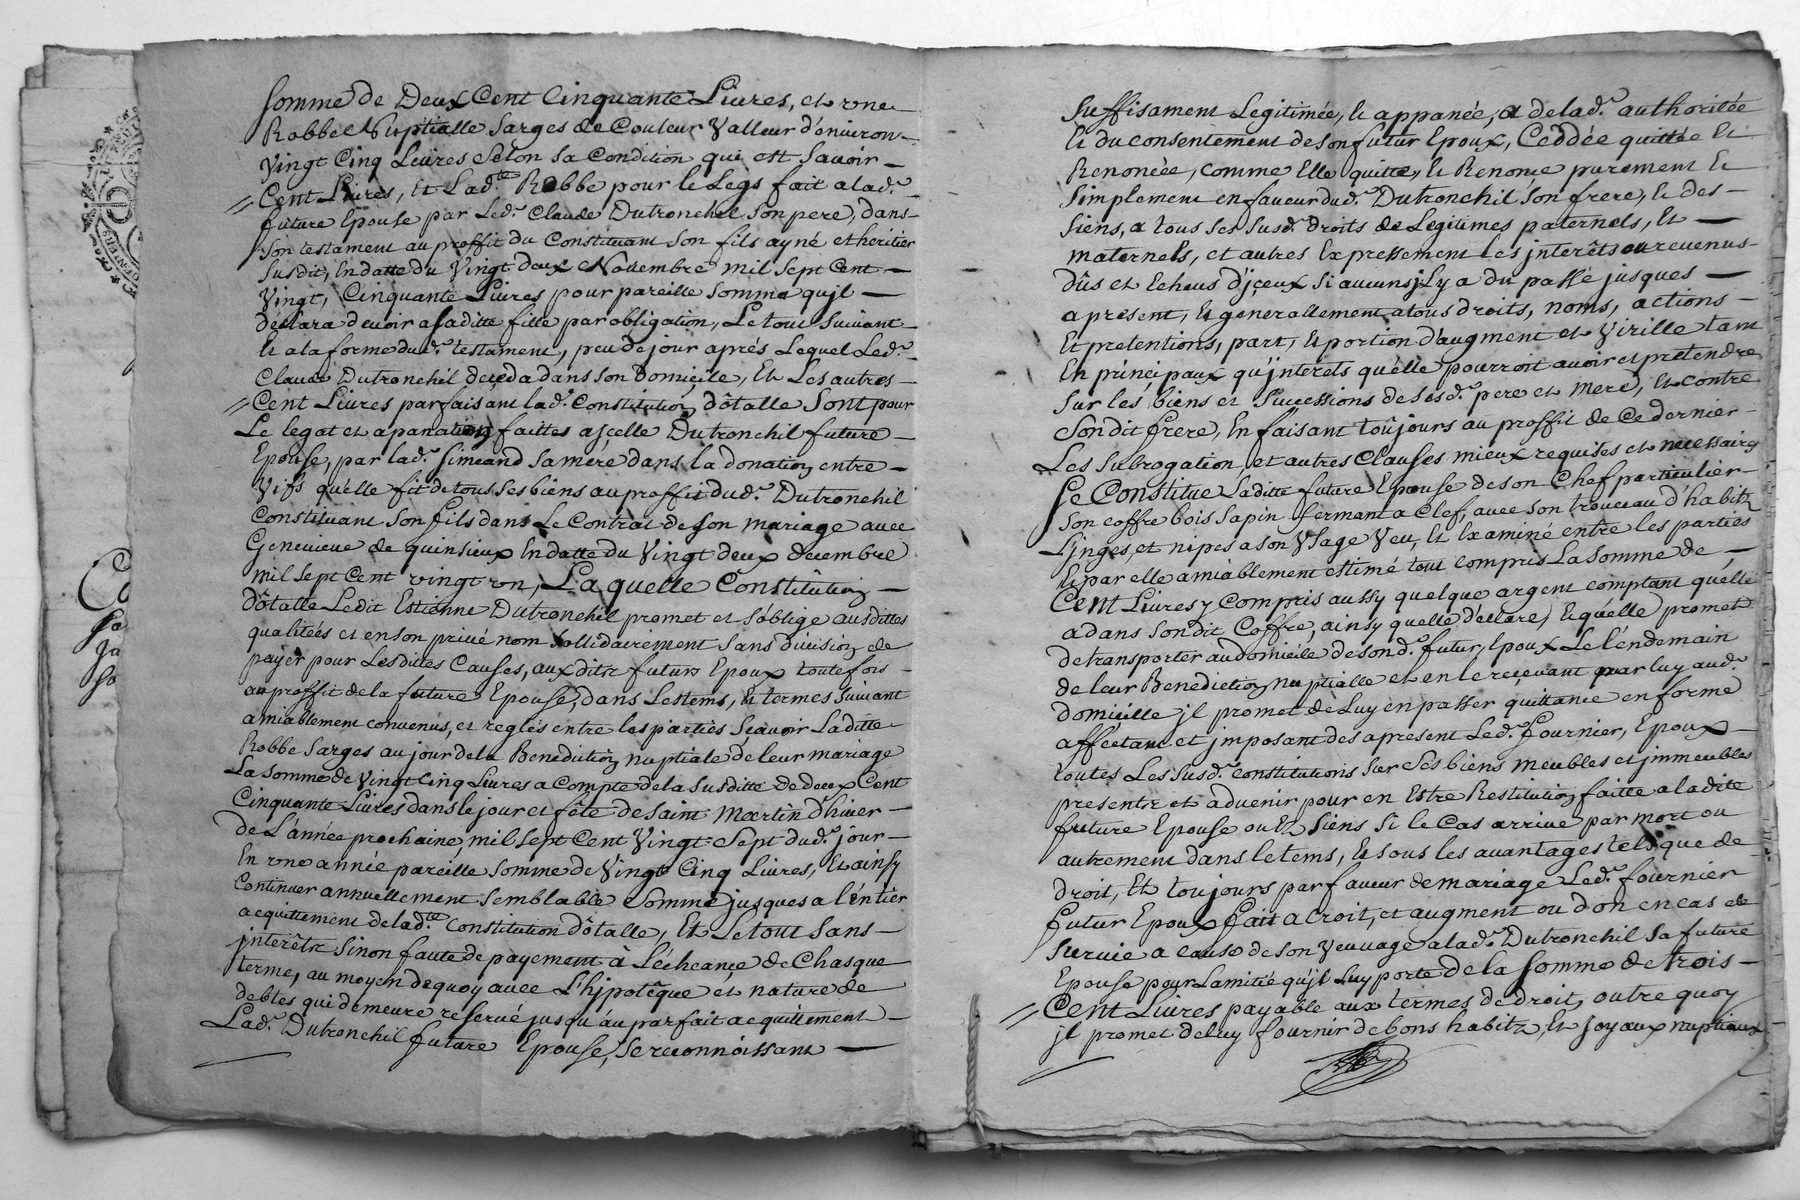 somme de Deux Cent Cinquante Livres, et vne
Robbe Nuptialle Sarges de Couleur Valleur d'environ
Vingt Cinq Livres selon sa Condition qui est savoir
Cent Livres, et Lad.te Robbe pour le Legs fait a lad.e
future Epouse par Led.t Claude Dutronchil son pere, dans
son testament au proffit du Constituant son fils ayné et héritier
susdit, en datte du Vingt deux Novembre mil sept Cent
Vingt, Cinquante Livres pour pareille somme qu'jl
déclara devoir a saditte fille par obligation, Le tout suivant
et a la forme dud.t testament, peu de jour aprés Lequel Led.t
Claude Dutronchil deçeda dans son Domiçile, et Les autres
Cent Livres parfaisant lad.e Constitution dôtalle sont pour
Le legat et apanation faittes a jcelle Dutronchil future
Epouse, par lad.e Simeand sa mére dans la donation entre
Vifs qu'elle fit de tous ses biens au proffit dud.t Dutronchil
Constituant son fils dans Le Contrat de son mariage avec
Genevieve de quinsieux en datte du Vingt deux decembre
mil sept Cent vingt vn, La quelle Constitution
dôtalle Ledit Estienne Dutronchil promet et s'oblige ausdittes
qualitées et en son privé nom sollidairement sans division de
payer pour Lesdittes Causes, aux ditz futurs Epoux toutefois
au proffit de la future Epouse, dans Les tems, et termes suivant
amiablement convenus, et reglés entre les parties Scavoir Laditte
Robbe Sarges au jour de la Benediction nuptiale de leur mariage
La somme de Vingt Cinq Livres a Compte de la susditte de deux Cent
Cinquante Livres dans le jour et fête de saint Martin d'hiver
de L'année prochaine, mil sept Cent Vingt sept dud.t jour
en vne année pareille somme de Vingt Cinq Livres, et ainsy
Continuer annuellement semblable somme jusques a l'entier
acquittement de lad.te Constitution dôtalle, et Le tout sans
interêtz sinon faute de payement à L'écheançe de Chasque
terme, au moyen dequoy avec L'hjpotêque et nature de
debtes qui demeure reservé jusqu'au parfait acquittement
Lad.e Dutronchil future Epouse, se reconnoissant
suffisament Legitimée, et appanée, a de lad.e authoritée
et du consentement de son futur Epoux, Ceddée quittée et
Renoncée, comme Elle quitte, et Renonce purement et
simplement en faveur dud.t Dutronchil son frere, et des
siens, a tous ses susd.t droits de Legitimes paternels, et
maternels, et autres Expressement Les interêts ou revenus
dûs et Echeus d'jçeux si aucuns jl y a du passé jusques
a present, et generallement a tous droits, noms, actions
et pretentions, part, et portion d'augment et Virille tant
en prinçipaux qu'jnterêts qu'elle pourroit avoir et pretendre
sur les biens et successions de sesd.t pere et mere, et contre
sondit frere, En faisant toûjours au proffit de ce dernier
Les subrogation et autres Clauses mieux requises et necessaires
Se Constitue Laditte future Epouse de son Chef particulier
son coffre bois sapin fermant a Clef, avec son trousseau d'habitz
Linges, et nipes a son Vsage Veu, et Examiné entre les parties
et par elle amiablement estimé tout compris La somme de
Cent Livres y Compris aussy quelque argent comptant qu'elle
a dans sondit Coffre, ainsy quelle déclare, et quélle promet
de transporter au domicile de sond.t futur Epoux Le lendemain
de leur Benediction nuptialle et en le reçevant par luy aud.t
domicille jl promet de Luy en passer quittance en forme
affectant et jmposant des apresent Led.t Fournier, Epoux
toutes Les susd.e constitutions sur ses biens meubles et jmmeubles
presentz et advenir pour en Estre Restitution faitte a ladite
future Epouse ou Ez siens si le Cas arrive par mort ou
autrement dans le tems, et sous les avantages tels que de
droit, et toujours par faveur de mariage Led.t fournier
futur Epoux fait acroit, et augment ou don en cas de
survie a cause de son veuvage a lad.e Dutronchil sa future
Epouse pour Lamitié qu'jl Luy porte de la somme de trois
Cent Livres payable aux termes de droit, outre quoy
jl promet de luy fournir de bons habitz, et joyaux nuptiaux